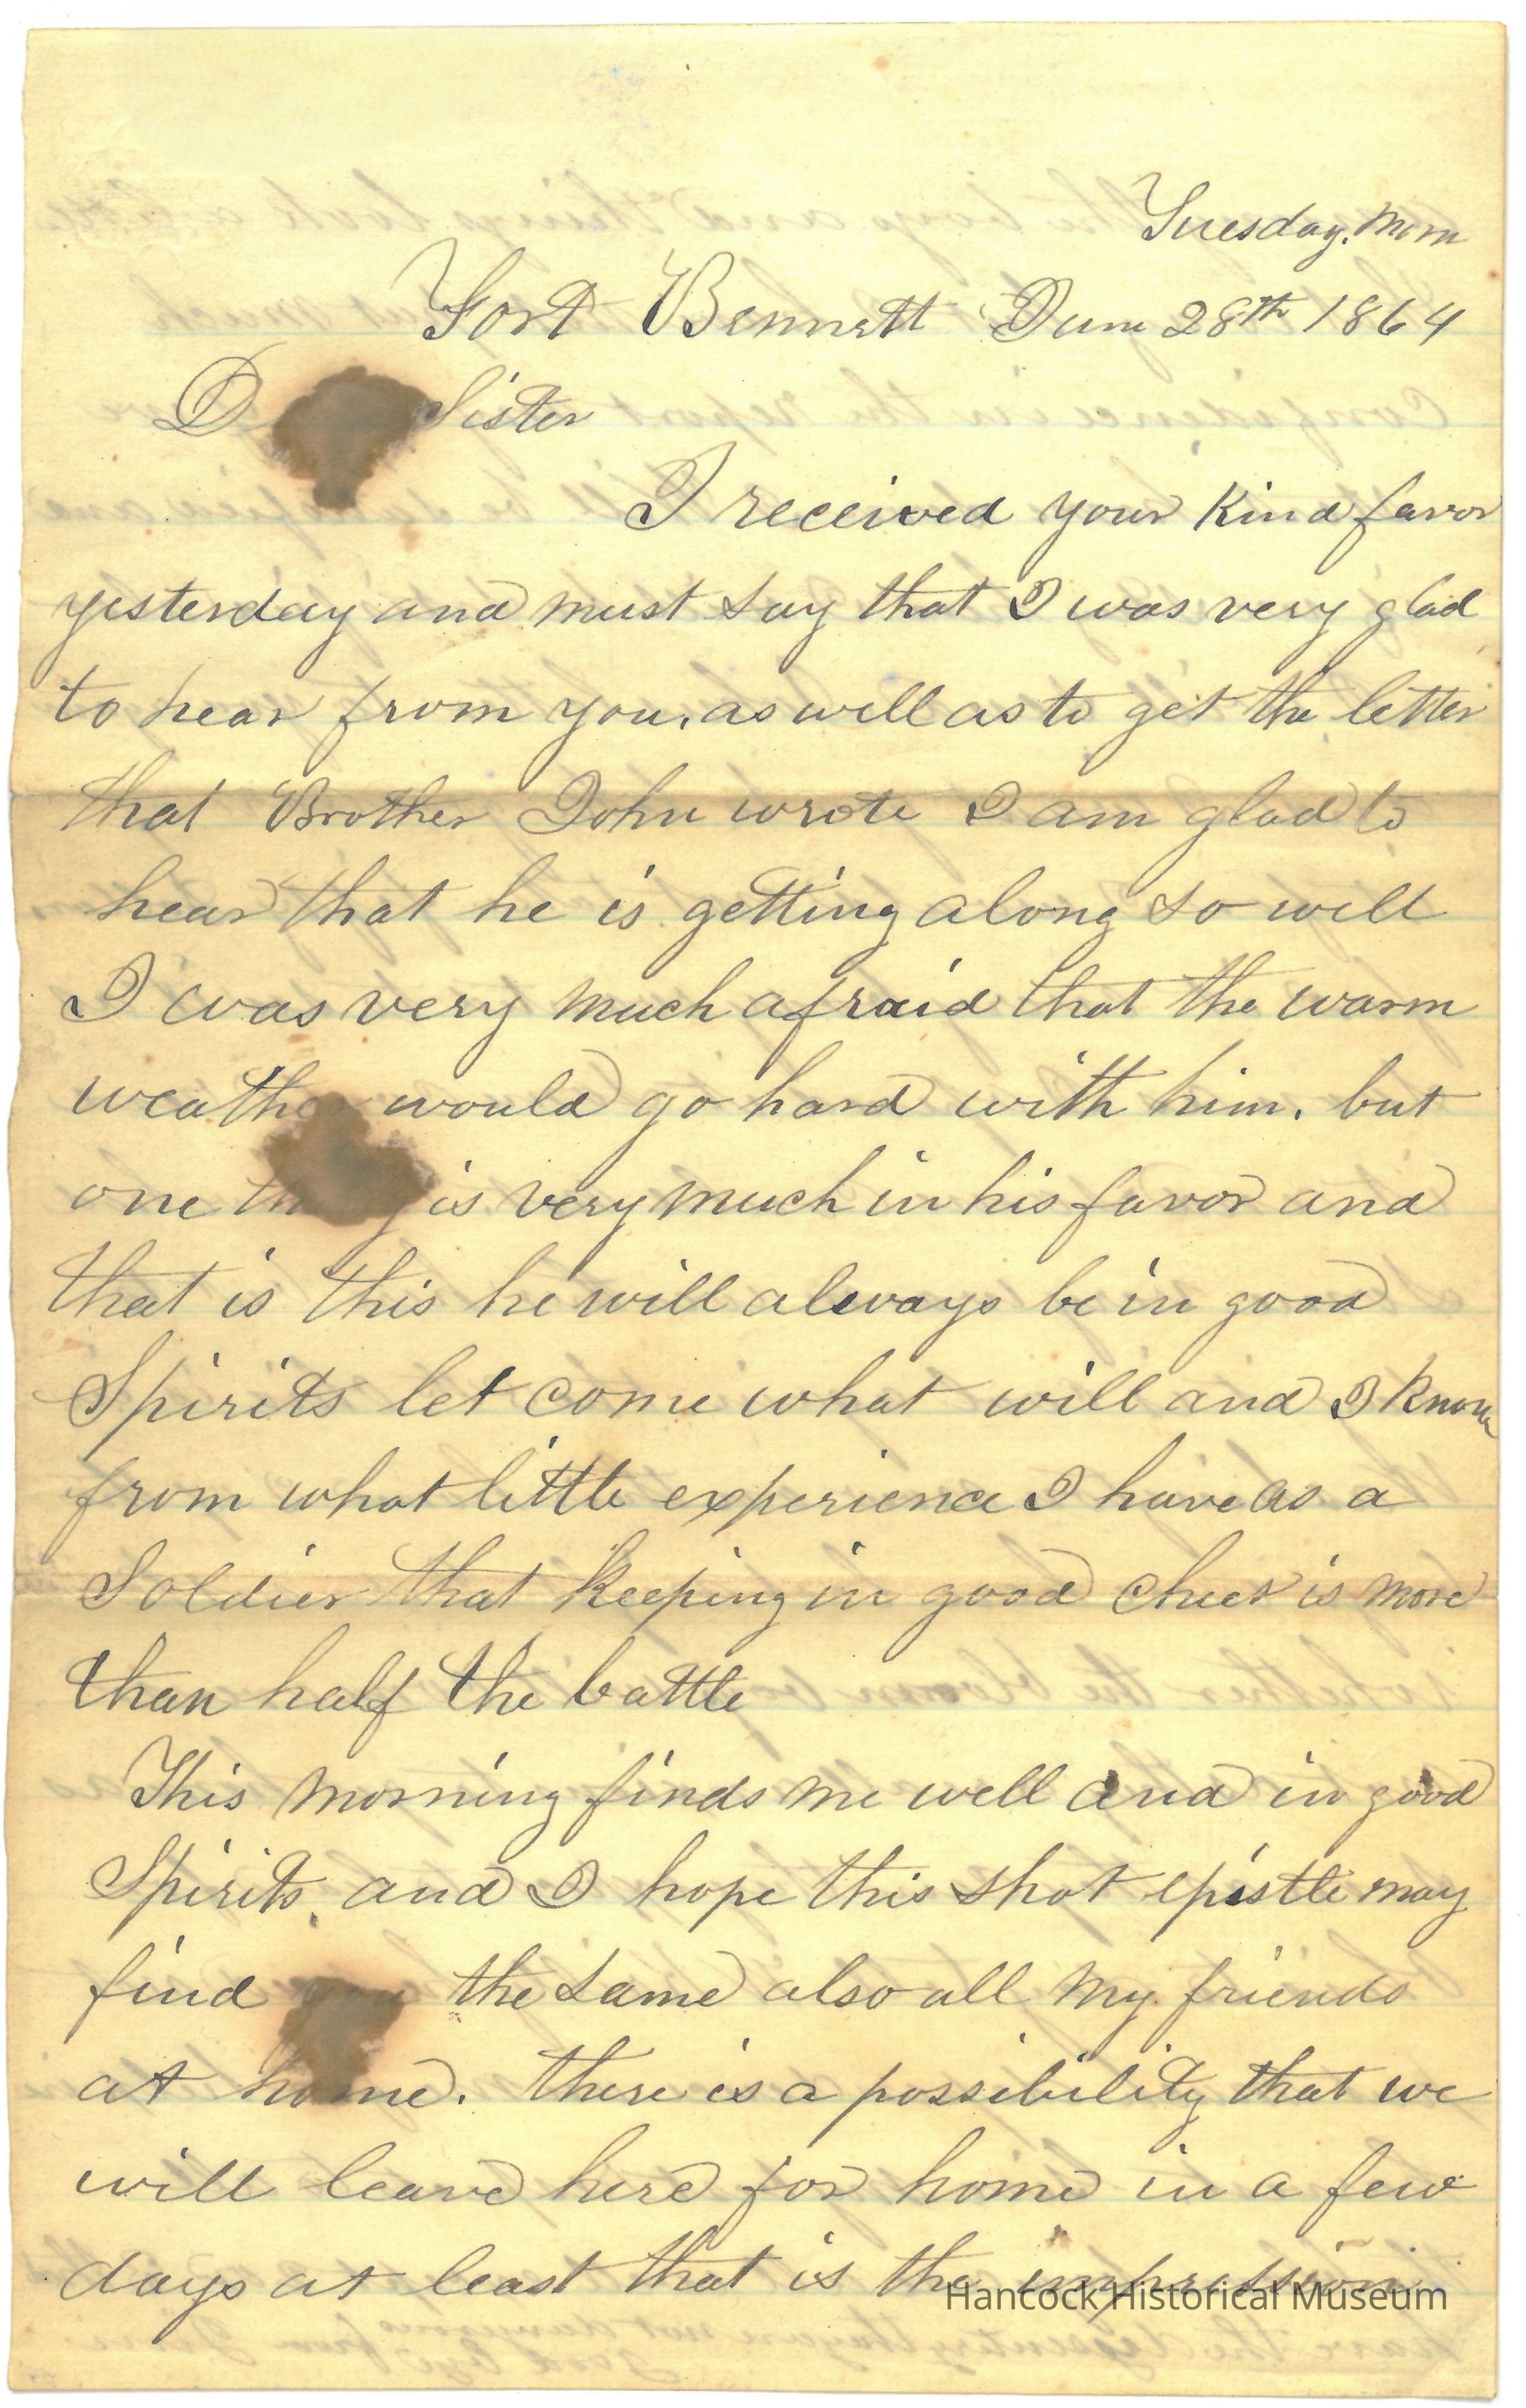 Tuesday. Morn
Fort Bennett June 28th 1864
D Sister
I received your Kind favor
yesterday and must say that I was very glad
to hear from you. as well as to get the letter
that Brother John wrote I am glad to
hear that he is getting along so well
I was very much afraid that the warm
weather would go hard with him. but
one is very much in his favor and
that is this he will always be in good
Spirits let come what will and I know
from what little experience I have as a
Soldier that Keeping in good cheer is more
than half the battle
This morning finds me well and in good
Spirits, and I hope this shot epistle may
find the same also all my friends
at home. there is a possibility that we
will leave here for home in a few
days at least that is the impression
Hancock Historical Museum